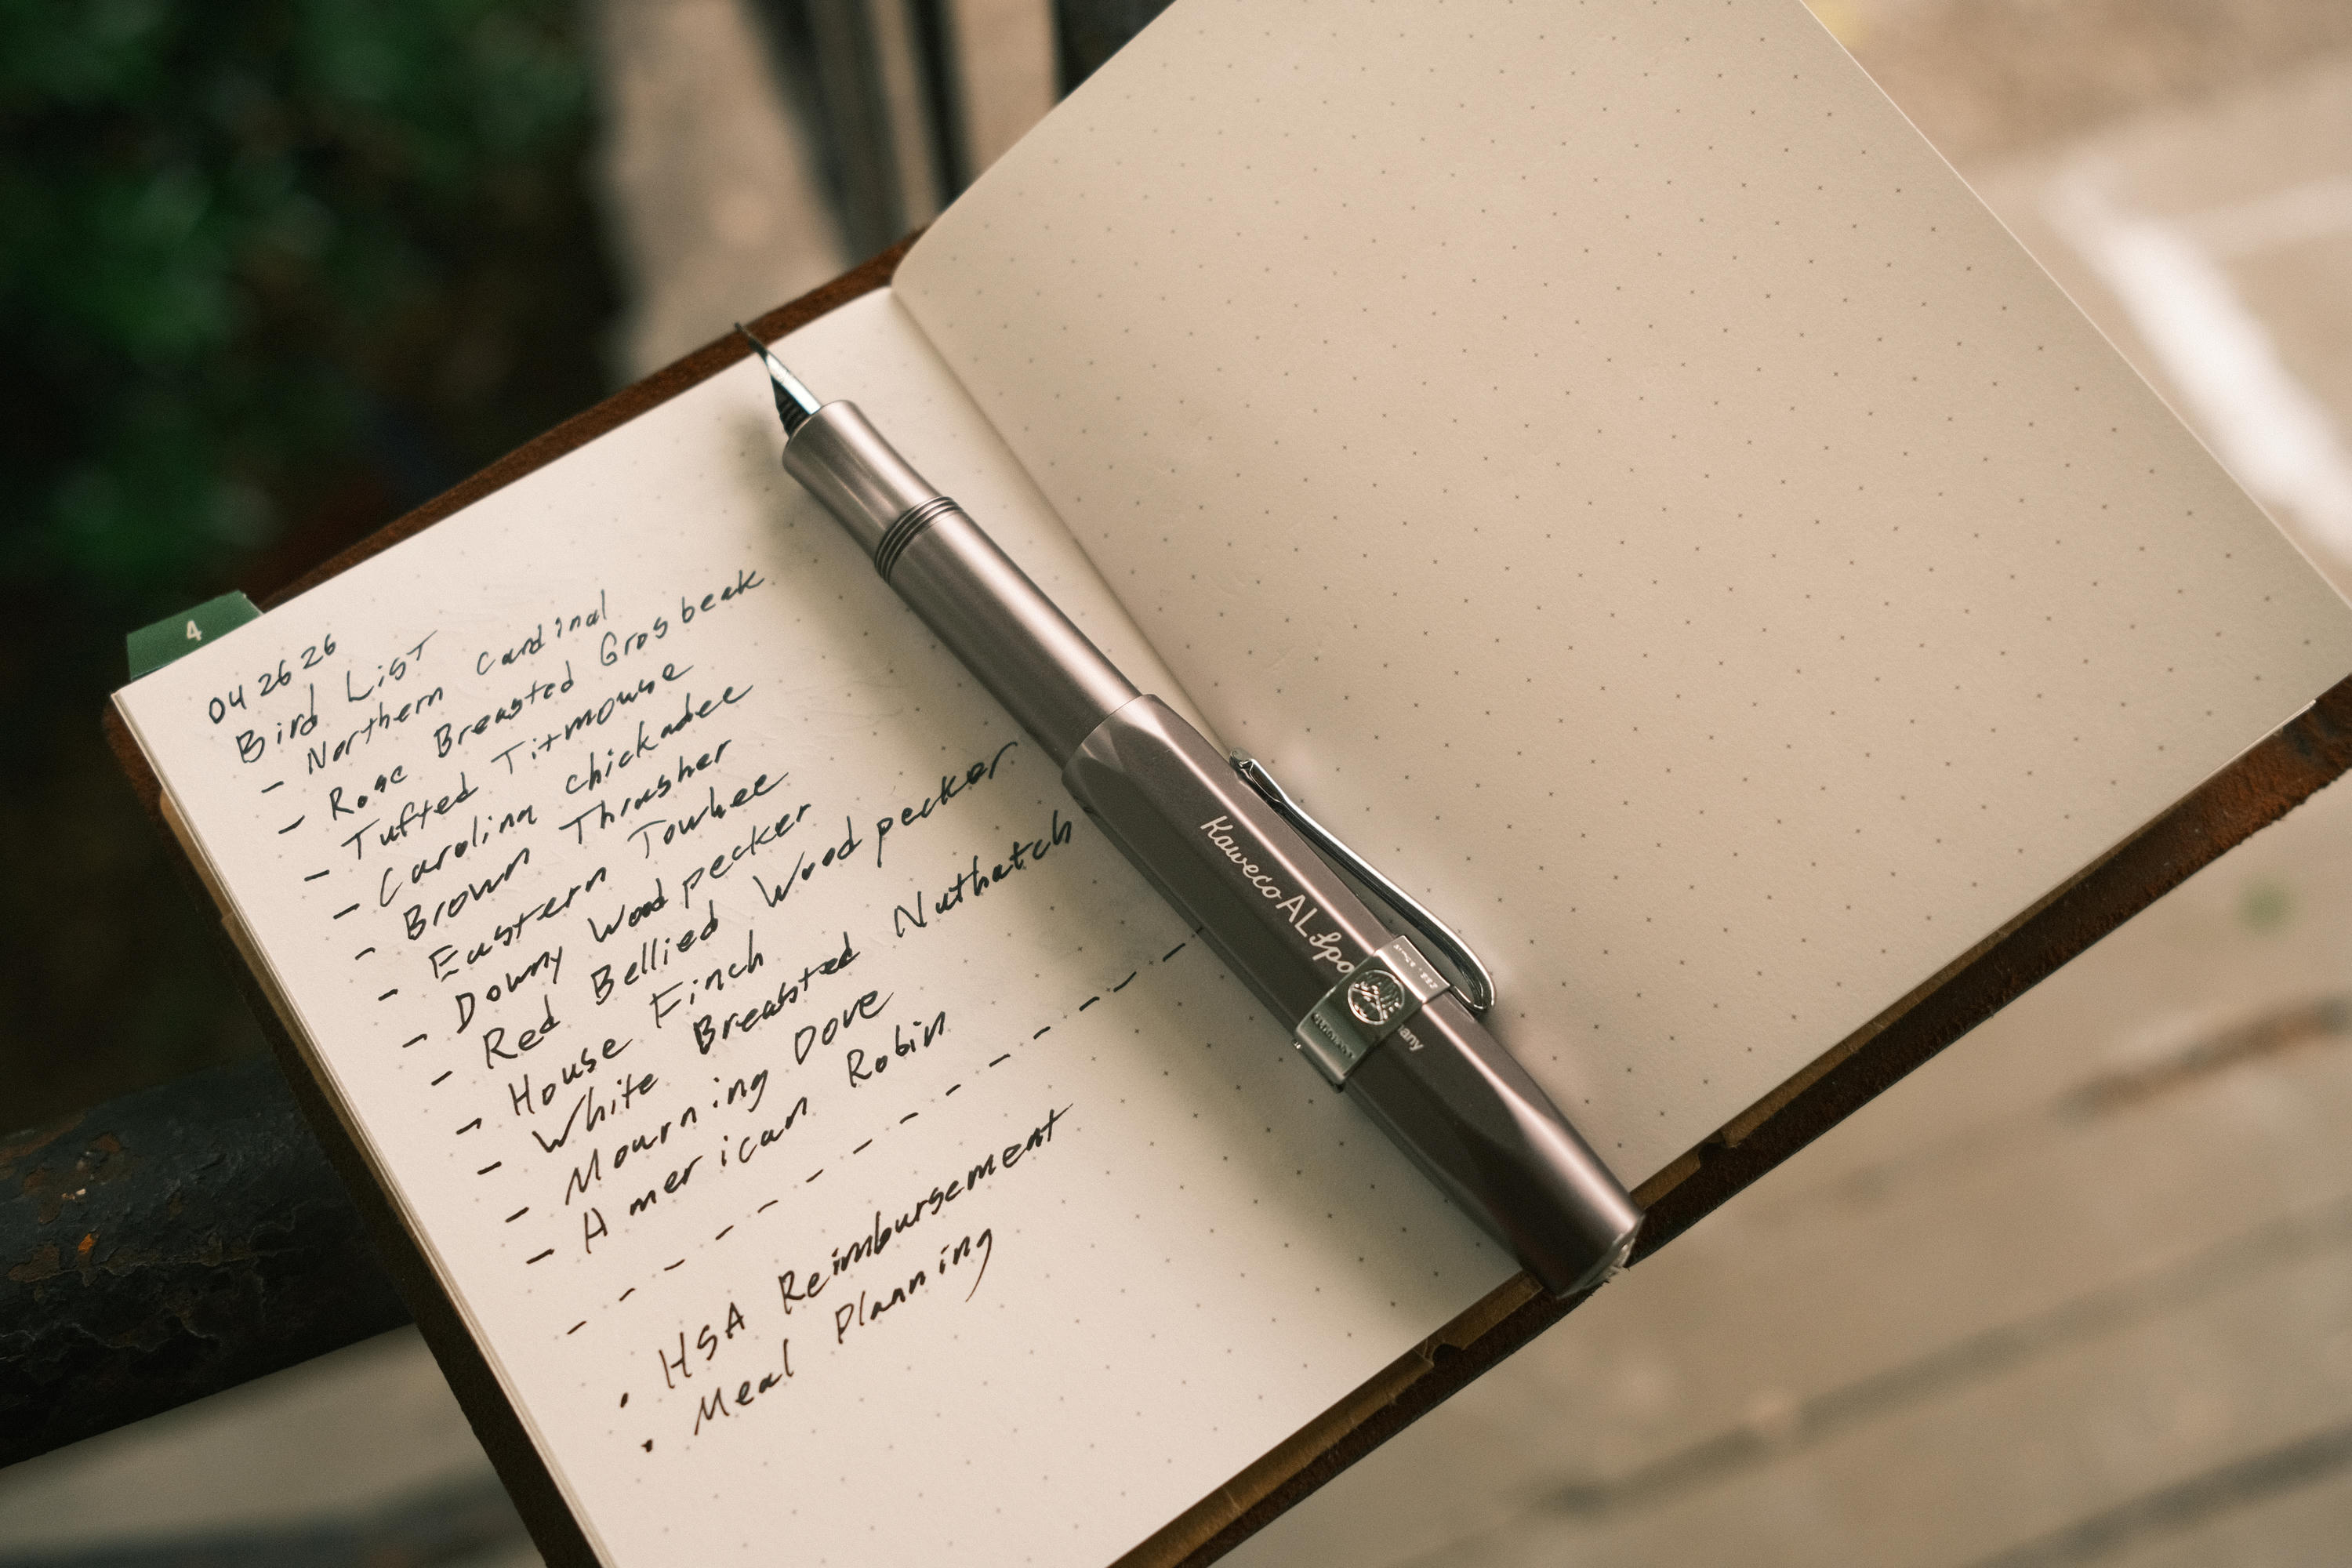 4
04 26 26
Bird List
- Northern Cardinal
- Rose Breasted Grosbeak
- Tufted Titmouse
- Carolina chickadee
- Brown Thrasher
- Eastern Towhee
- Downy Woodpecker
- Red Bellied Woodpecker
- House Finch
- White Breasted Nuthatch
- Mourning Dove
- American Robin
• HSA Reimbursement
• Meal Planning
Kaweco AL Spo
any